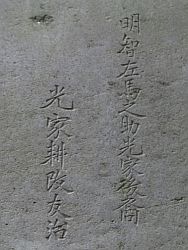 明智左馬之助光家後裔
光家耕改友治